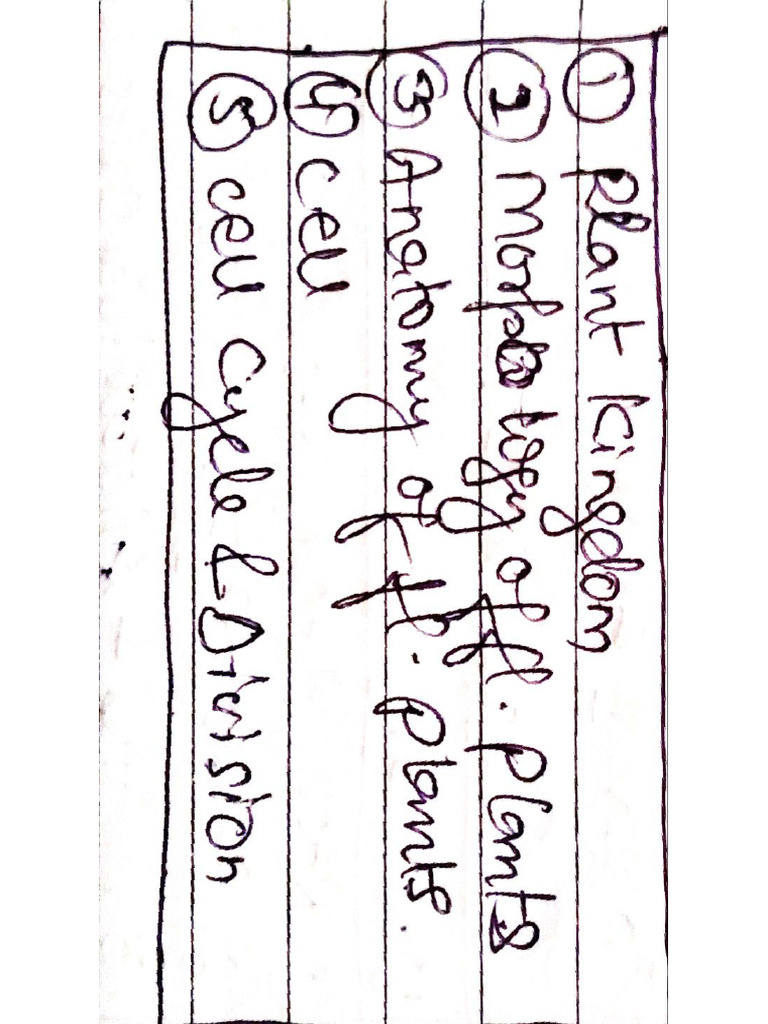 ① Plant kingdom
② Morphology of fl. plants
③ Anatomy of fl. plants.
④ Cell
⑤ Cell Cycle & Division